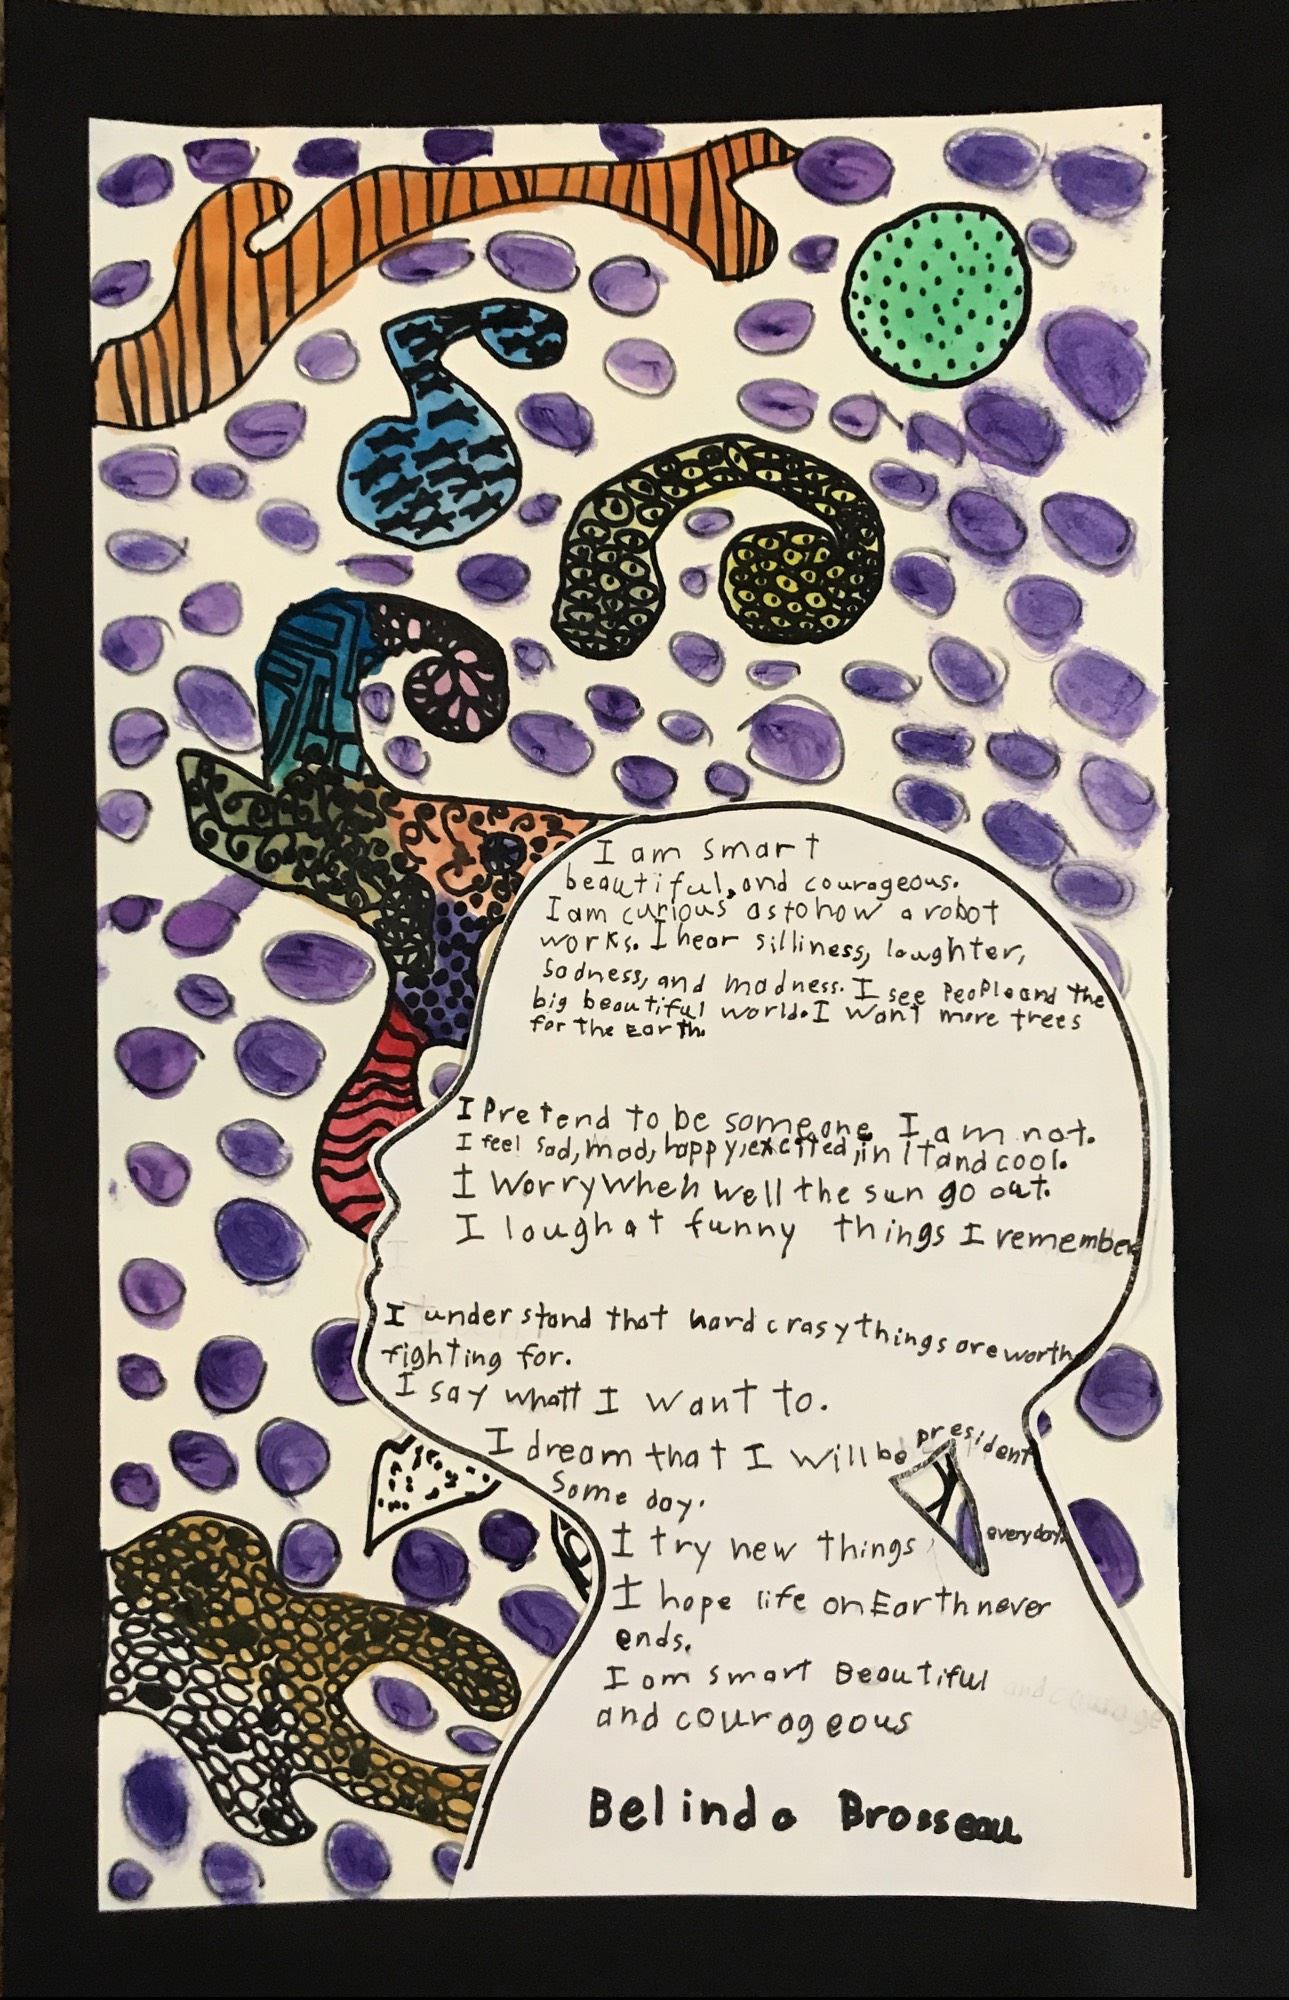 I am smart
beautiful, and courageous.
I am curious as to how a robot
works. I hear silliness, laughter,
sadness, and madness. I see People and the
big beautiful world. I want more trees
for the Earth.
I Pretend to be someone I am not.
I feel sad, mad, happy, excited, in it and cool.
I Worry when well the sun go out.
I laugh at funny things I remember
I understand that hard crasy things are worth
fighting for.
I say whatt I want to.
I dream that I will be president
Some day.
I try new things everyday.
I hope life on Earth never
ends.
I am smart Beautiful
and courageous
Belinda Brosseau